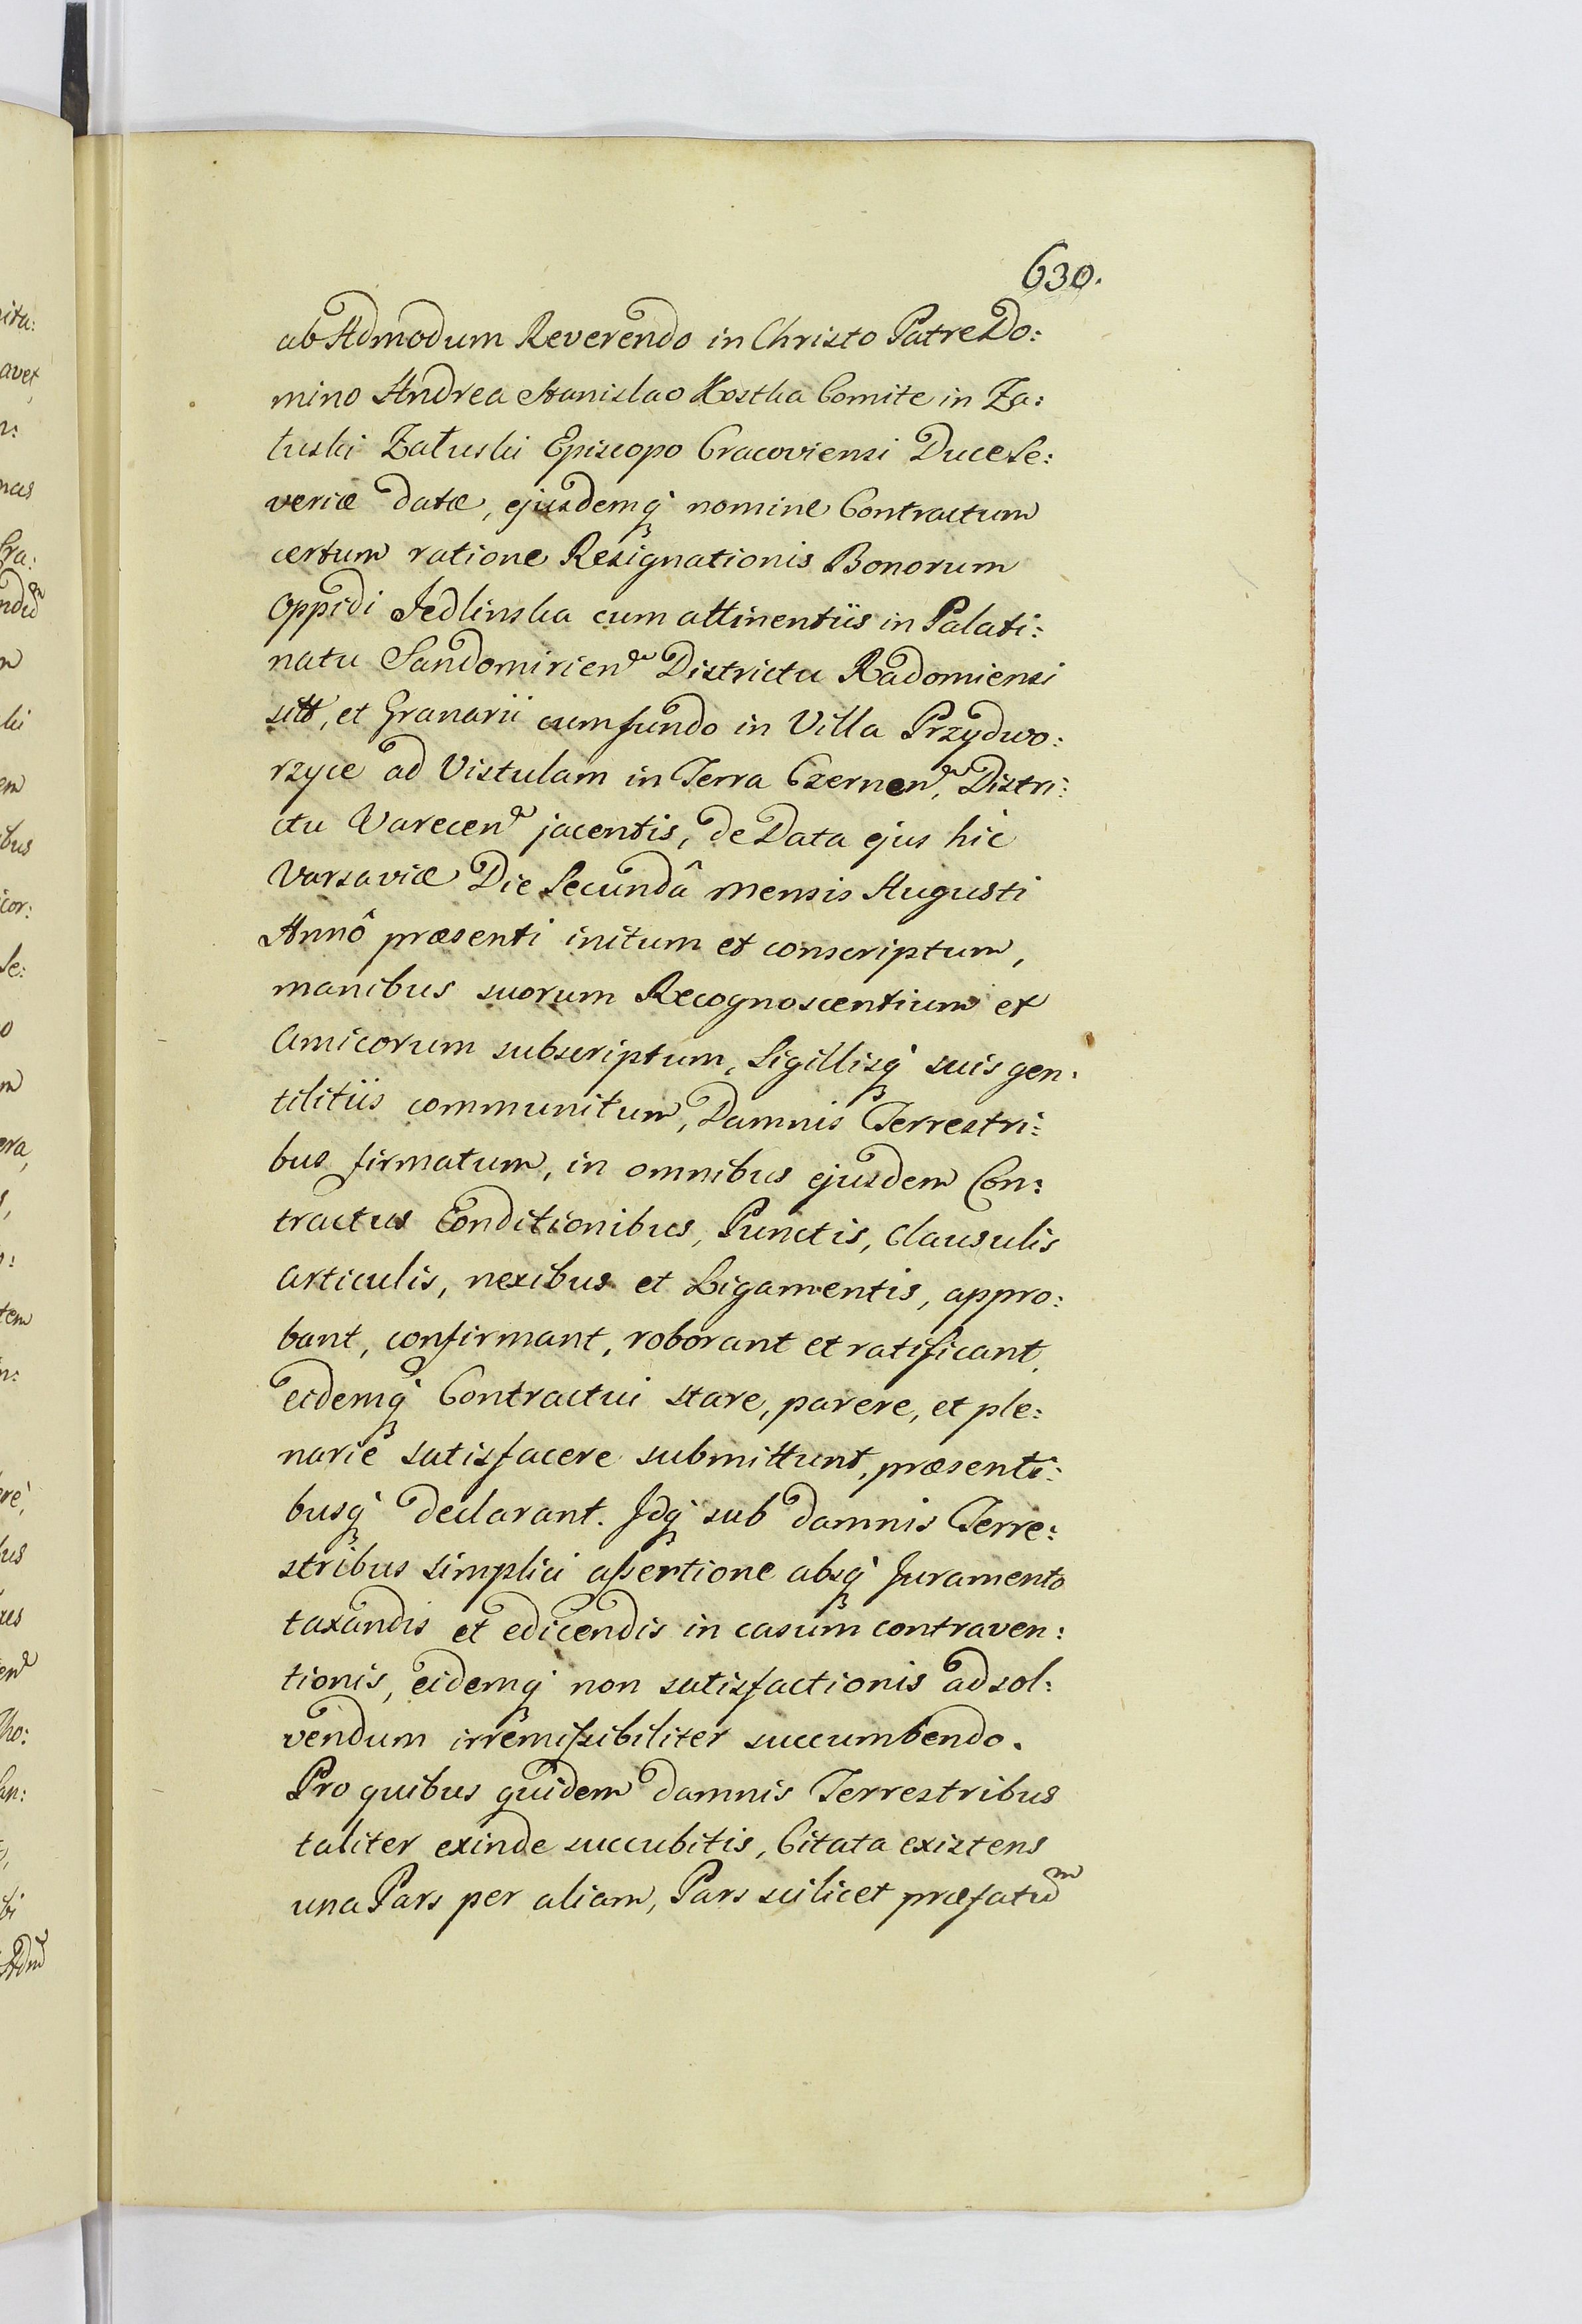 630.
ab Admodum Reverendo in Christo Patre Do:
mino Andrea Stanislao Kostka Comite in Za:
łuski Załuski Episcopo Cracoviensi Duce Se:
veriæ datæ, ejusdemq́ nomine Contractum
certum ratione Resignationis Bonorum
Oppidi Jedlinska cum attinentiis in Palati:
natu Sandomirien Districtu Radomiensi
sitt, et Granarii cum fundo in Villa Przydwo:
rzyce ad Vistulam in Terra Czernen, Distri:
ctu Varecen jacentis, de Data ejus hic
Varsaviæ Die Secundâ mensis Augusti
Annô præsenti initum et conscriptum,
manibus suorum Recognoscentium et
Amicorum subscriptum, Sigillisq́ suis gen:
tilitiis communitum, Damnis Terrestri:
bus firmatum, in omnibus ejusdem Con:
tractus Conditionibus, Punctis, Clausulis
Articulis, nexibus et Ligamentis, appro:
bant, confirmant, roborant et ratificant,
eidemq́ Contractui stare, parere, et ple:
narie satisfacere submittunt, præsenti:
busq́ declarant. Jdq́ sub damnis Terre:
stribus simplici assertione absq́ Juramento
taxandis et edicendis in casum contraven:
tionis, eidemq́ non satisfactionis ad sol:
vendum irremissibiliter succumbendo.
Pro quibus quidem damnis Terrestribus
taliter exinde succubitis, Citata existens
una Pars per aliam, Pars scilicet præfatu͞m
ita:
avet
n:
nas
Cra:
m
ki
em
ibus
cor:
Se:
o
m
era,
tem
n:
ere,
Tho:
bi